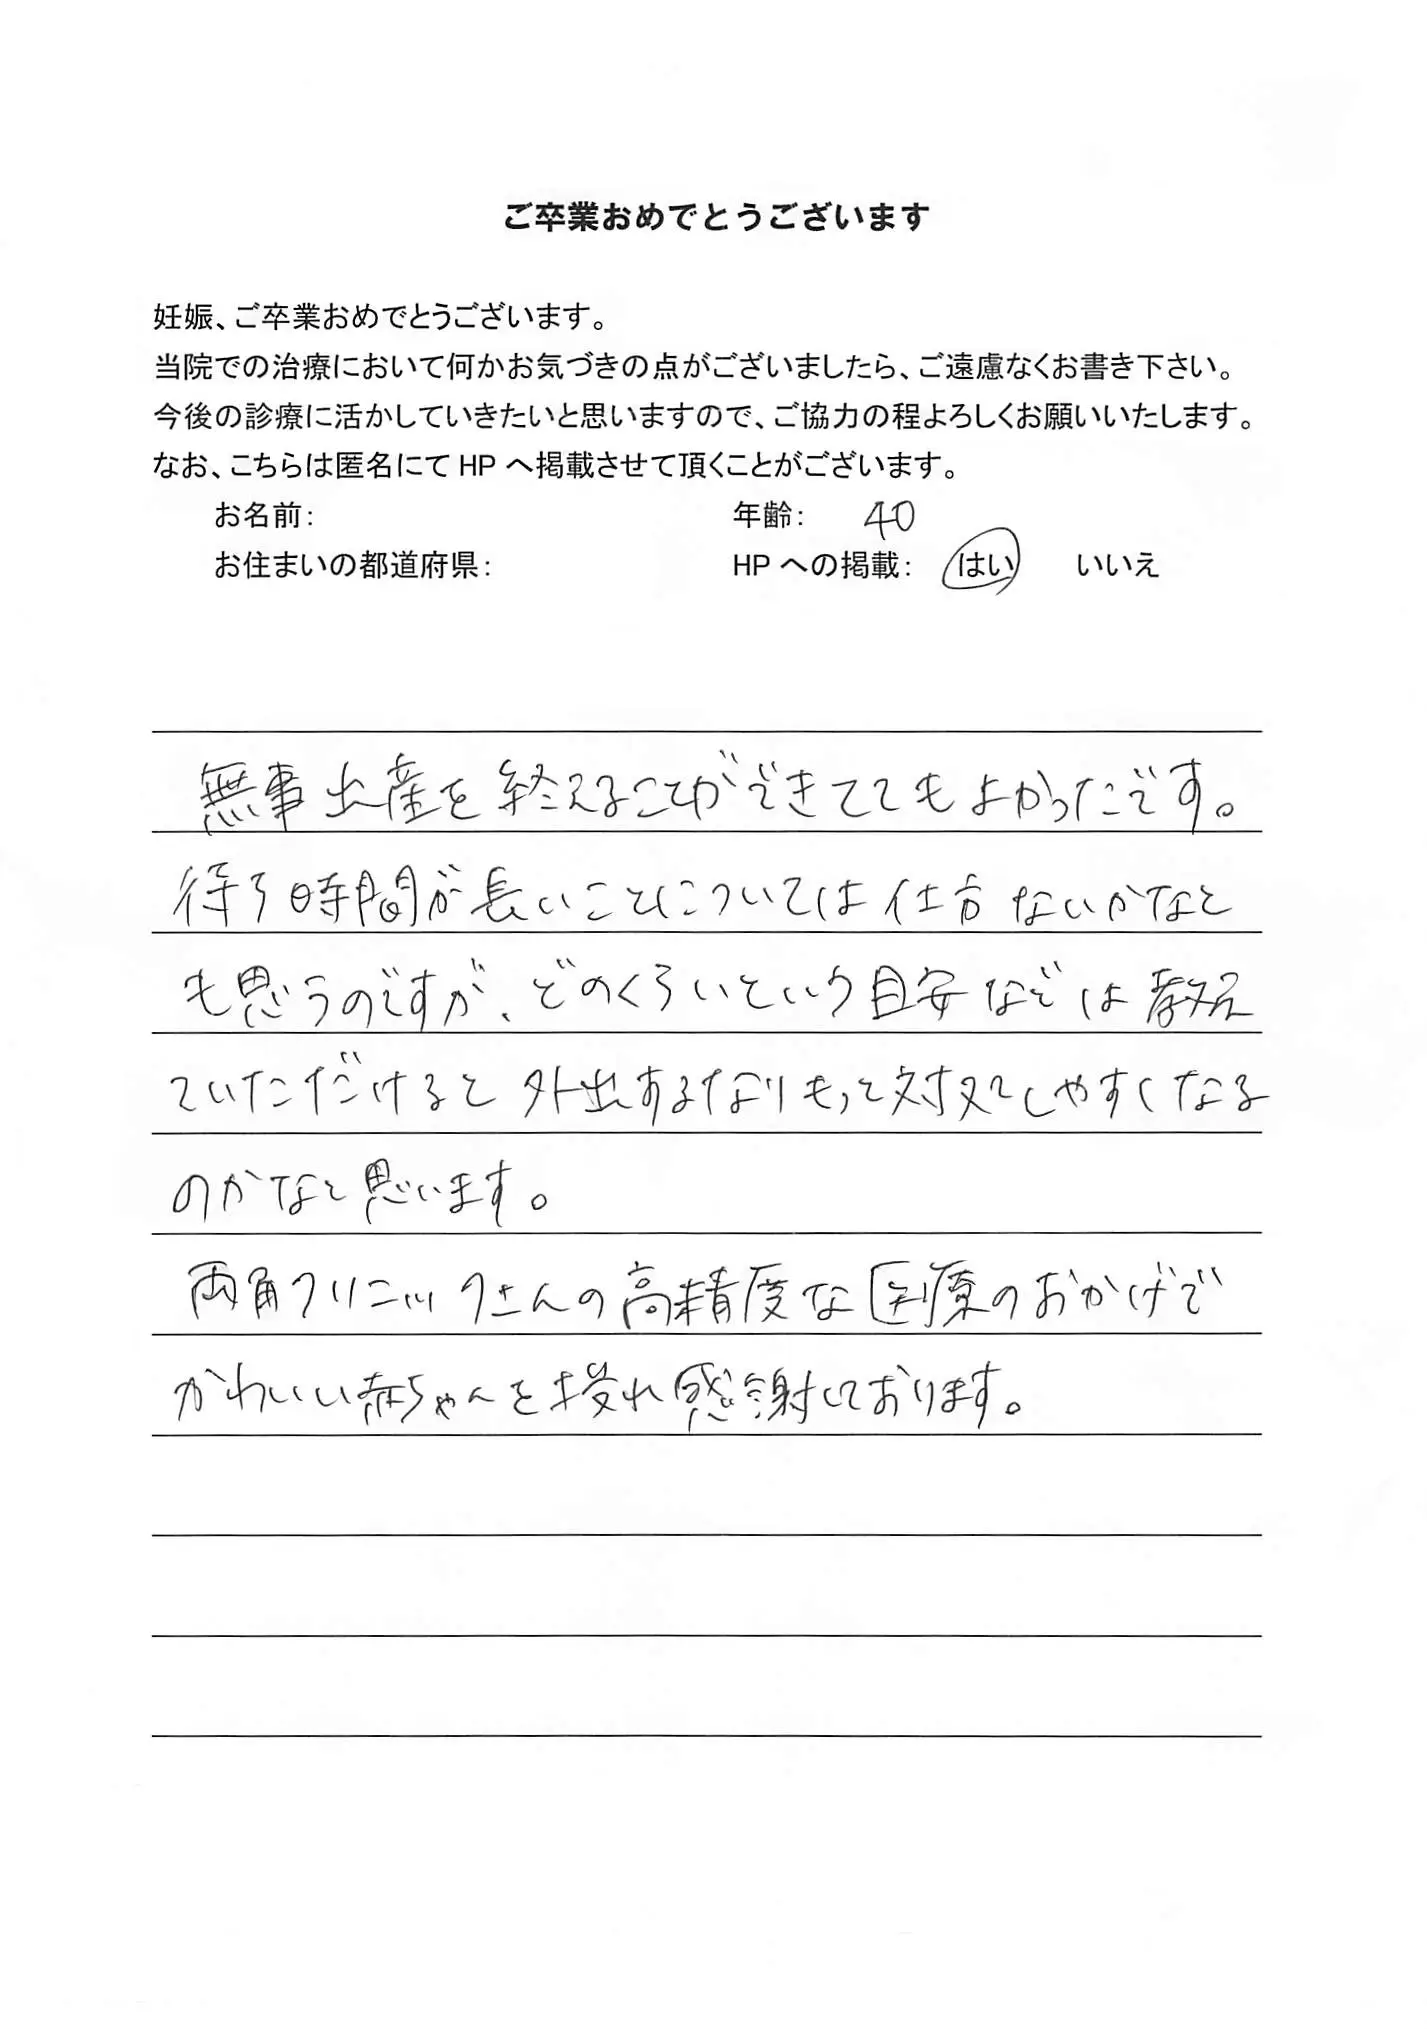 ご卒業おめでとうございます
妊娠、ご卒業おめでとうございます。
当院での治療において何かお気づきの点がございましたら、ご遠慮なくお書き下さい。
今後の診療に活かしていきたいと思いますので、ご協力の程よろしくお願いいたします。
なお、こちらは匿名にて HP へ掲載させて頂くことがございます。
お名前: 年齢: 40
お住まいの都道府県: HP への掲載: はい いいえ
無事出産を終えることができててもよかったです。
待ち時間が長いことについては仕方ないかなと
も思うのですが、どのくらいという目安などは教え
ていただけると外出するなりもっと対処しやすくなる
のかなと思います。
両角クリニックさんの高精度な医療のおかげで
かわいい赤ちゃんを授れ感謝しております。